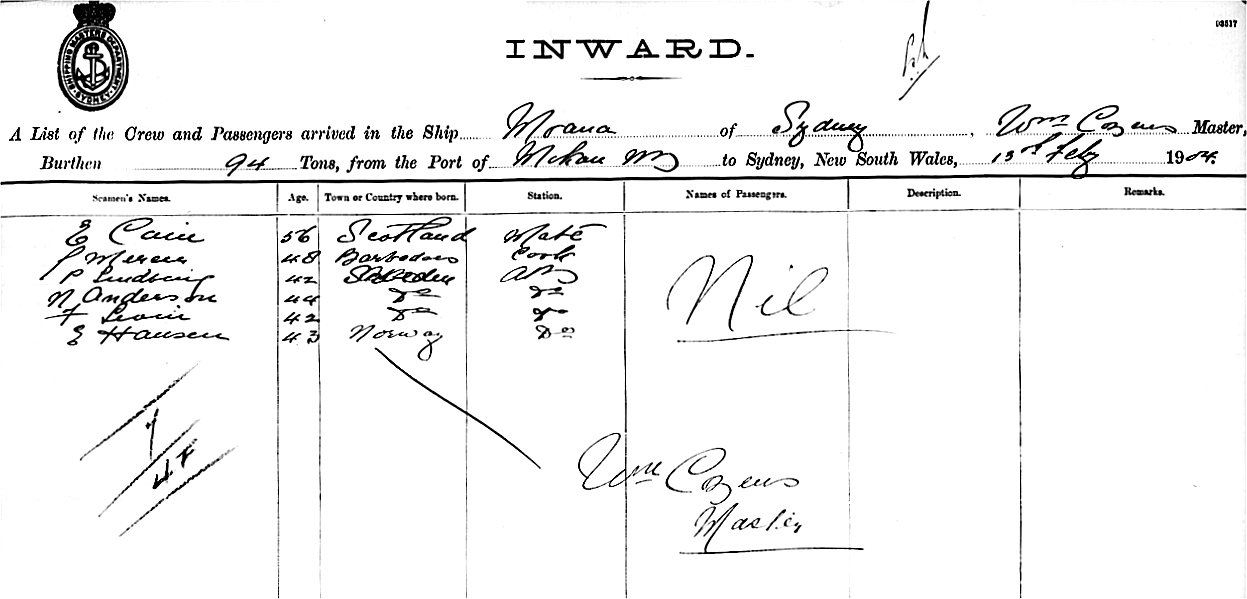 03517
INWARD.
SHIPPING MASTERS DEPARTMENT SYDNEY
A List of the Crew and Passengers arrived in the Ship Moana of Sydney, Wm Cozens Master,
Burthen 94 Tons, from the Port of to Sydney, New South Wales, 13th Feby 1904.
Seamen's Names. Age. Town or Country where born. Station. Names of Passengers. Description. Remarks.
E Cain 56 Scotland Mate
48 Barbadoes Cook
P 42 Sweden ABs
N Anderson 44 Do Do
F 42 Do Do
E Hansen 43 Norway Do
Nil
7
Wm Cozens
Master